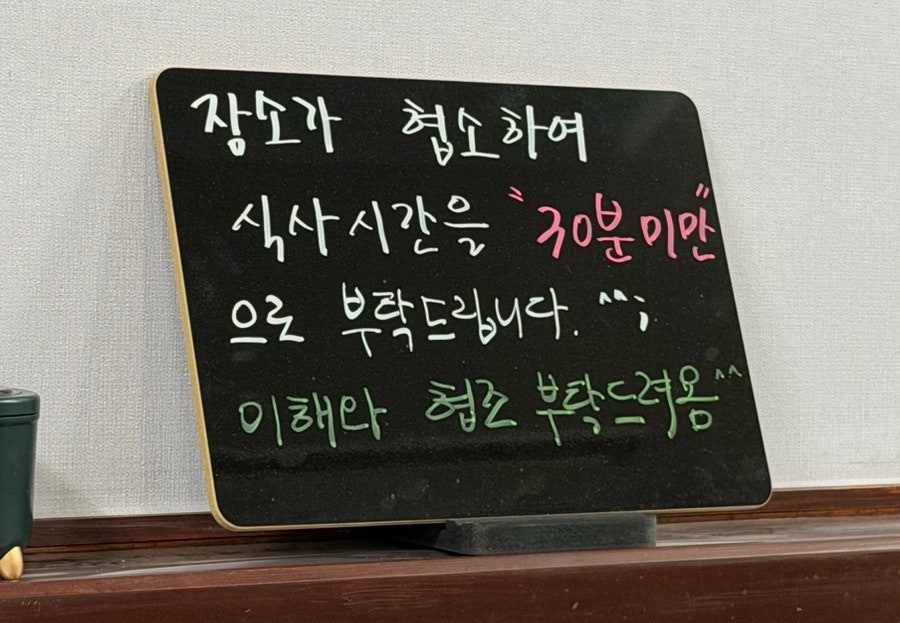 장소가 협소하여
식사시간을 "30분미만"
으로 부탁드립니다. ^^;
이해와 협조 부탁드려욤^^